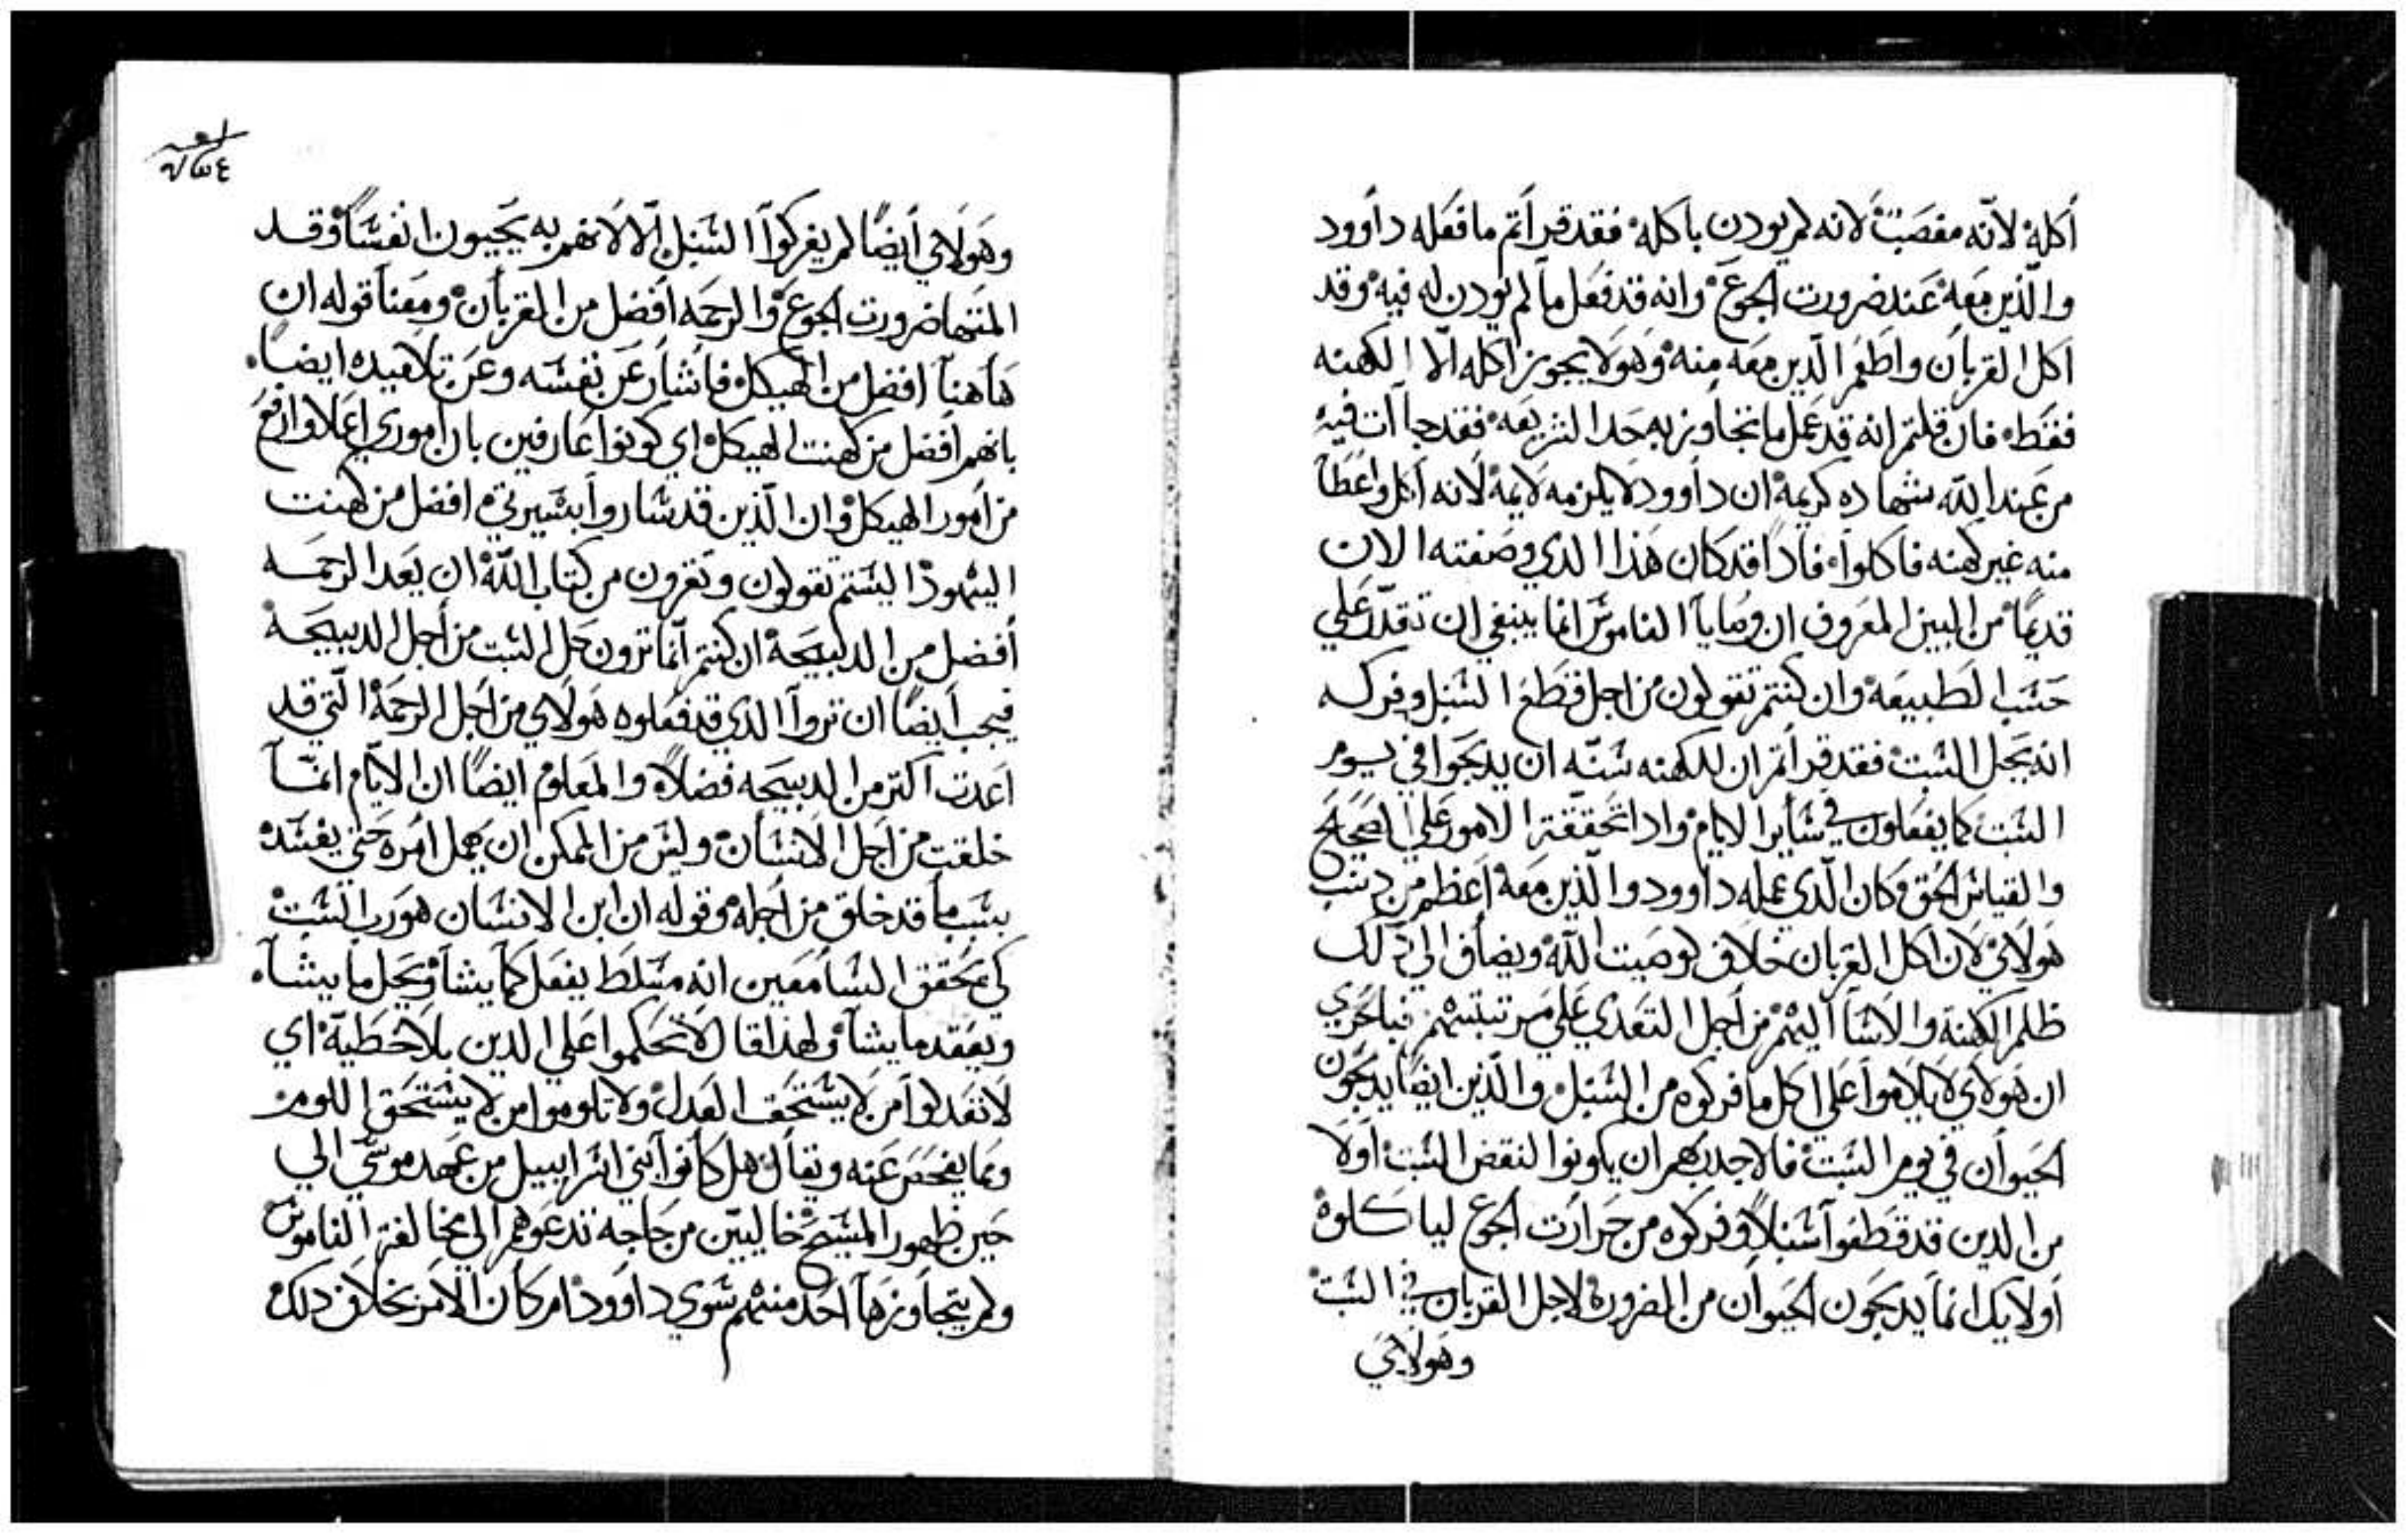 أكله لانّه مغصَبْ لانه لم يودن باكله فقد قرأتم ما فعَله داوود
والذين معَه عَند ضرورت الجوع وانه قد فعَل ما لم يودن له فيه وقد
اكل القربان واطعَم الدين معَه منه وهَو لا يجوز اكله الّا الكهنه
فقط فان قلتم انه قد عَمل ما تجاوز به حَد الشريعَه فقد جاآت فيه
من عَند الله شهاده كريمة ان داوود لا يلزمه لايمة لانه أكل واعَطا
منه غير كهنه فاكلوا فادا قد كان هَذا الدي وصَفته الان
قديمًا من البين المعَروف ان وصَايا الناموسَ انما ينبغي ان تقدّر عَلي
حَسَب الطبيعَه وان كنتم تقولون من اجل قطعَ السَنبل وفركه
انه يحَل السَبت فقد قرأتم ان للكهنه سَنّه ان يدبحَوا في يوم
السَبت كما يفعَلون في سَاير الايام وادا تحَققتم الامور عَلي الصَحَيح
والقياسَ الحَق وكان الّدي عَمله داوود والذين معَه أعَظم من دنب
هَولاي لان اكل القربان خلاف لوصَيت الله ويضاف الي دلك
ظلم الكهنة والاسَاآ اليهم من أجل التعَدي عَلي مرتبتهم فبالحَري
ان هَولاي لا يلاموا عَلي اكل ما فركوه من السَنبل والذين ايضًا يدبحَون
الحَيوان في يوم السَبت فالاجدر بهم ان يكونوا النقض السَبت أولا
من الدين قد قطفوا سَنبلاً وفركوه من حَرارت الجوع لياكلوه
أولايك انما يدبحَون الحَيوان من الضرورة لاجل القربان في السَبت
وهَولاي
وهَولاي أيضًا لم يفركوا السَنبل الّا لانهم به يحَييون انفسَاً وقد
المتهَا ضرورت الجوع والرحمَه افضل من القربان ومعَنا قوله ان
هَاهنا افضل من الهيكل فاشار عَن نفسَه وعَن تلاميده ايضاً
بانهم أفضل من كهنت الهيكل اي كونوا عَارفين بان أموري اعَلا وارفع
من أمور الهيكل وان الّذين قد سَاروا بسَيرتي افضل من كهنت
اليهود السَتم تقولون وتقرون من كتاب اللّه ان تعَد الرحمَه
أفضل من الدبيحَة ان كنتم انّما ترون حَل السَبت من أجل الدبيحَة
فيجب أيضًا ان تروا الدي قد فعَلوه هَولاي من أجل الرحمَة الّتي قد
اعَدت أكتر من الدبيحَه فضلاً والمعَلوم ايضًا ان الايّام انمّا
خلقت من اجل الانسَان وليسَ من الممكن ان يهمل امره حَتي يفسَد
بسَبب ما قد خلق من أجله وقوله ان ابن الانسَان هو رب السَبت
كي يحَقق السَامعَين انه مسَلط يفعَل كما يشا ويحَل ما يشاَ
ويعَقد ما يشا ولهذا قال لا تحَكموا عَلي الدين بلا خطيّة اي
لا تعَدلوا من لا يسَتحَق العَدل ولا تلوموا من لا يسَتحَق اللوم
ومما يفحَصَ عَنه ويقال هَل كانوا بني اسَراييل من عَهد موسَي الي
حَين ظهور المسَيح خاليين من حَاجه تدعَوهم الي مخالفة الناموسَ
ولم يتجاوزهَا احَد منهم سَوي داوود ام كان الامر بخلاف دلك